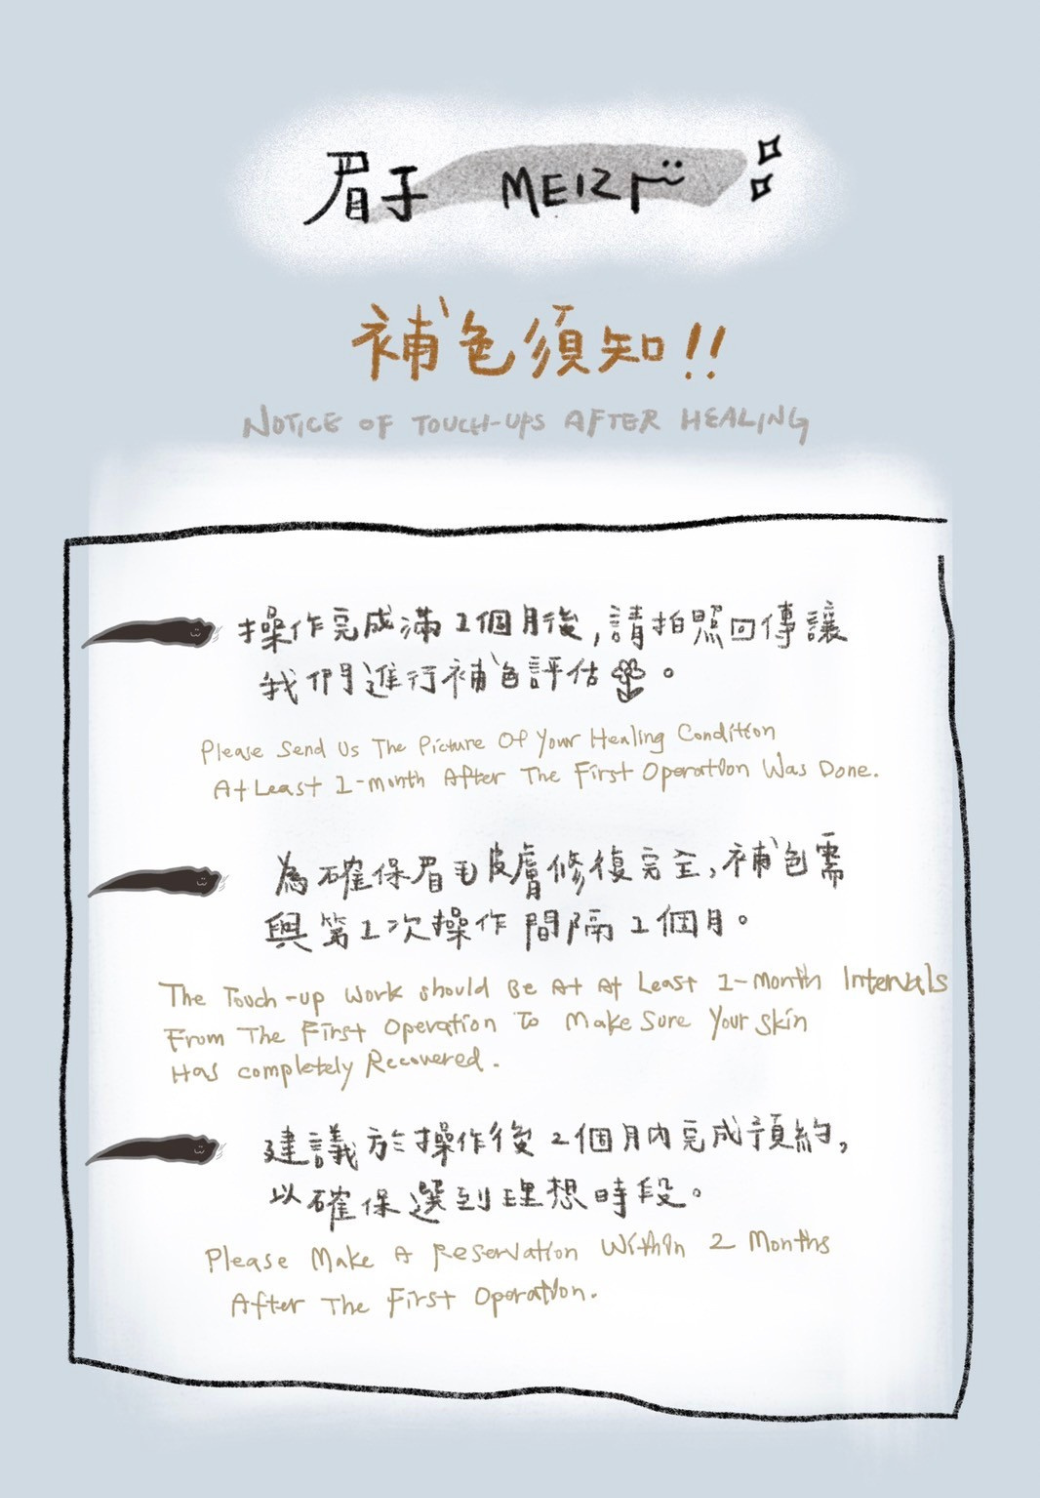 眉子 MEIZI
補色須知!!
NOTICE OF TOUCH-UPS AFTER HEALING
操作完成滿1個月後,請拍照回傳讓
我們進行補色評估。
Please Send Us The Picture Of Your Healing Condition
At Least 1-month After The First Operation Was Done.
為確保眉毛皮膚修復完全,補色需
與第1次操作間隔1個月。
The Touch-up Work should Be At At Least 1-Month Intervals
From The First Operation To Make Sure Your Skin
Has completely Recovered.
建議於操作後2個月內完成預約,
以確保選到理想時段。
Please Make A Reservation Within 2 Months
After The First Operation.